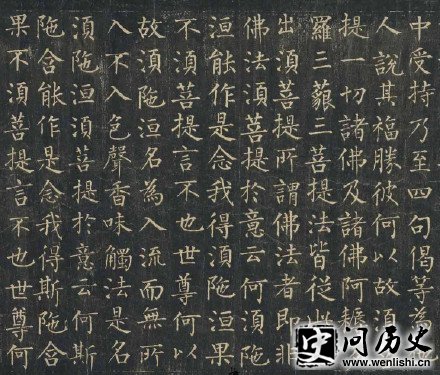 中受持乃至四句偈等為
人說其福勝彼何以故須
提一切諸佛及諸佛阿耨
羅三藐三菩提法皆從此
出須菩提所謂佛法者即非
佛法須菩提於意云何須陁
洹能作是念我得須陁洹果
不須菩提言不也世尊何以
故須陁洹名為入流而無所
入不入色聲香味觸法是名
須陁洹須菩提於意云何斯
陁含能作是念我得斯陁含
果不須菩提言不也世尊何
问历史
www.wenlishi.cn